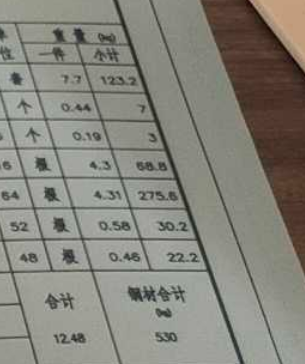 重量 (kg)
位 一件 小计
套 7.7 123.2
个 0.44 7
个 0.19 3
6 根 4.3 68.8
64 根 4.31 275.6
52 根 0.58 30.2
48 根 0.46 22.2
合计 钢材合计
(kg)
12.48 530